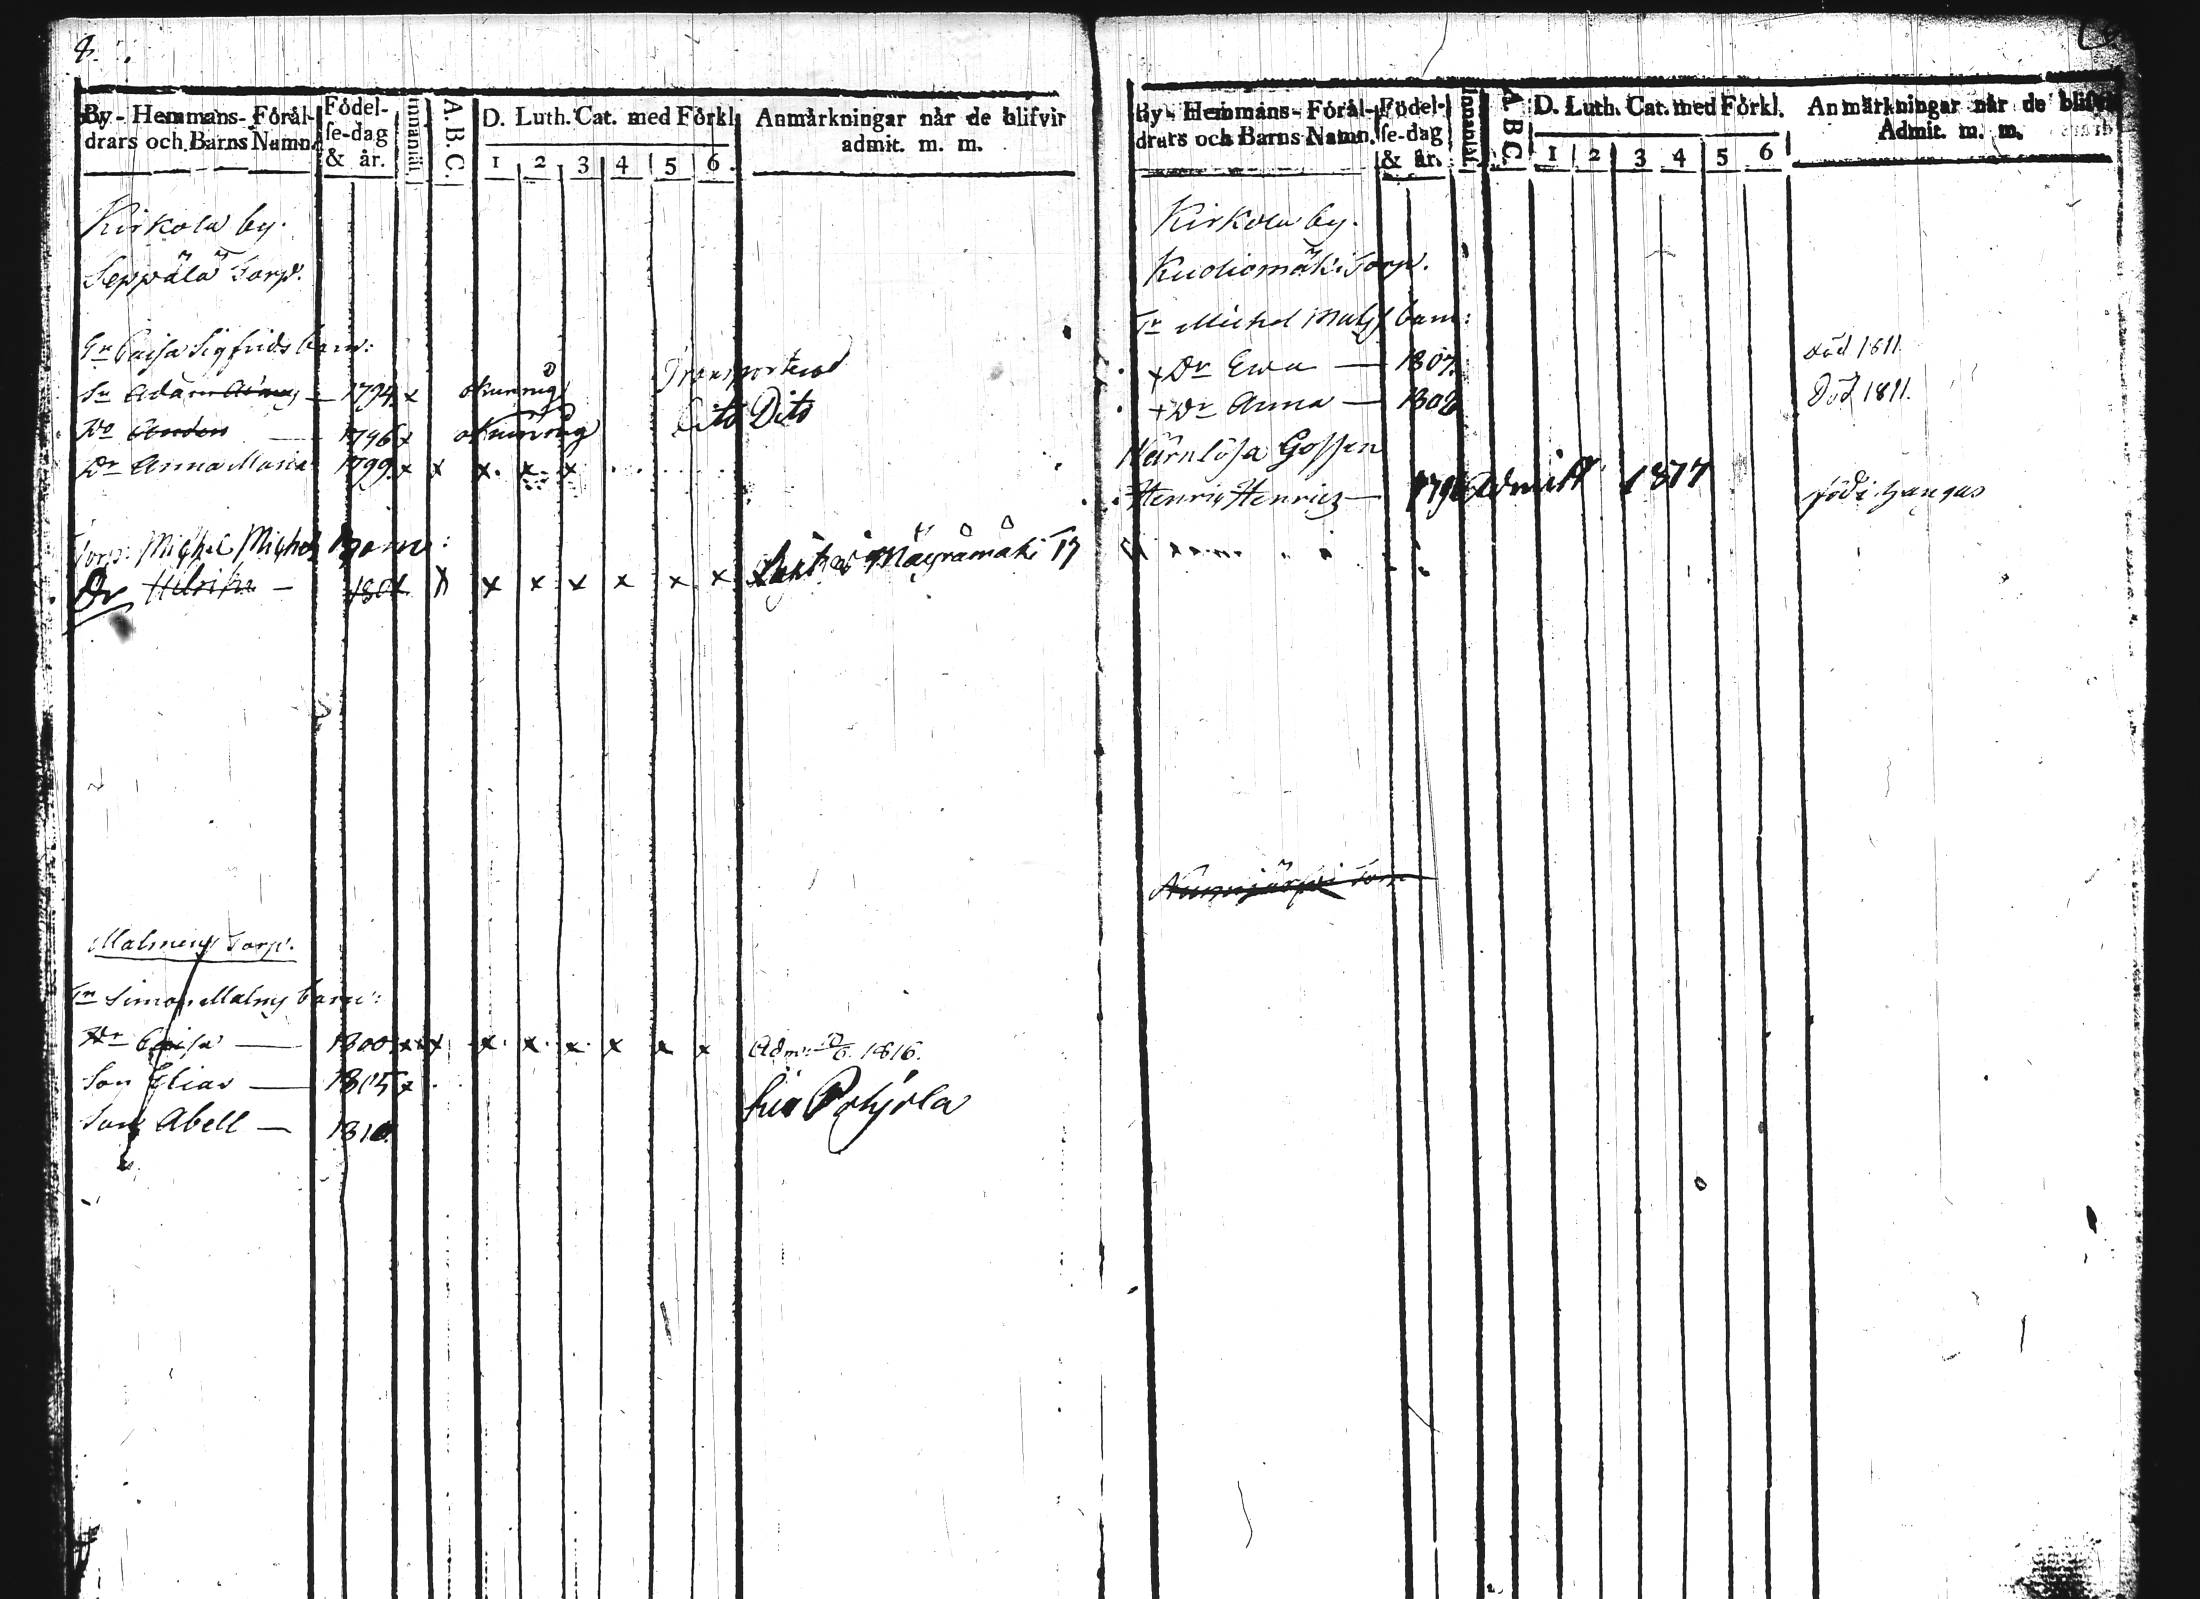 8.
By- Hemmans- Förål-
drars och Barns Namn.
Födel-
se-dag
& år.
Innanläs.
A. B. C.
D. Luth. Cat. med Förkl.
1 2 3 4 5 6.
Anmärkningar när de blifvir
admit. m. m.
Kirkola by.
Seppälä Torp.
Caisa Sigfrids barn:
Sn Adam 1794. x okunnig Transporterad
1796 x okunnig Dito Dito
Dr Anna Maria 1799 x x x. x. x
Torp: Michel Michels Barn:
Dr 180 x x x x x x x Mäyrämäki 17
Malmens Torp.
Tn Simon Malms barn:
Dr Caisa — 1800. x x x. x. x. x x x Adm: 1816.
Son Elias — 1805 x
Son Abell — 1810. Pohjola
By- Hemmans- Förål-
drars och Barns Namn.
Födel-
se-dag
& år.
Innanläs.
A. B C.
D. Luth. Cat. med Förkl.
1 2 3 4 5 6
Anmärkningar når de blifvit
Admit. m. m.
Kirkola by.
Kuoliomäki Torp.
Tn Michel Mats barn:
+ Dr Ewa — 1807. död 1811.
+ Dr Anna — 1808 Död 1811.
Wärnlösa Gossen
Henric Henrics — 1796 Admitt 1817 född i Hangas
Torp